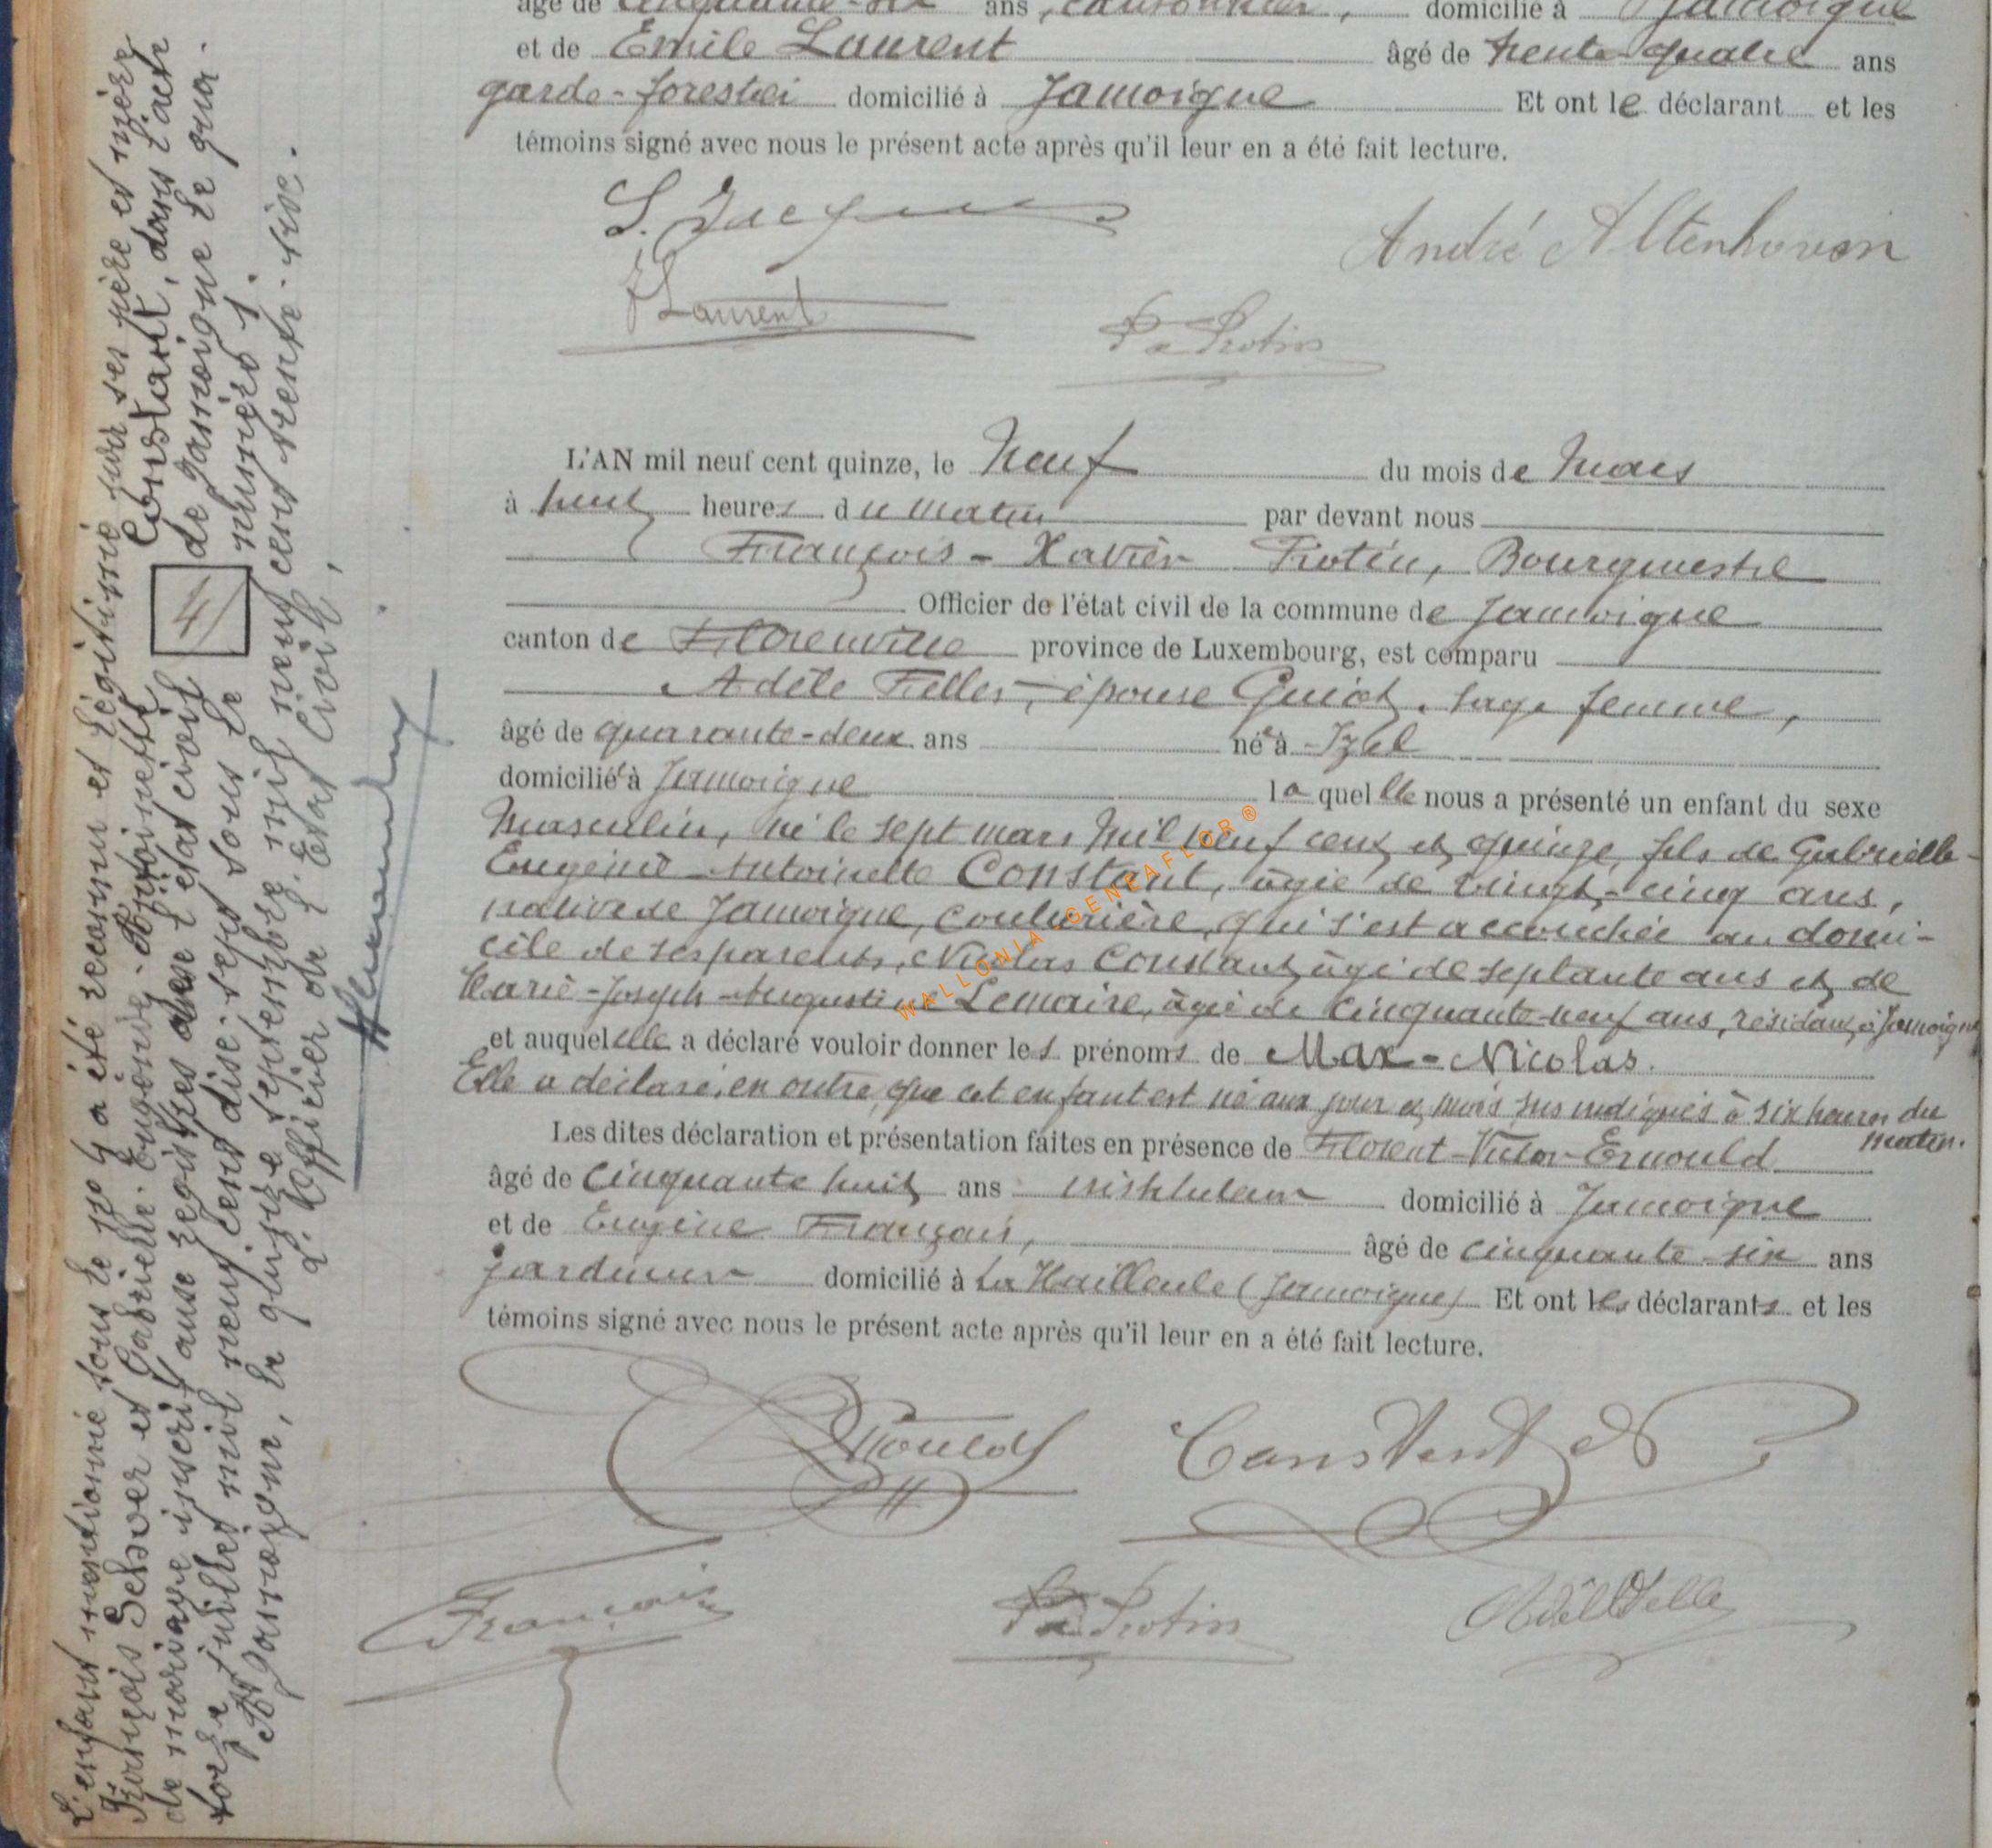 âgé de cinquante-six ans, cantonnier, domicilié à Jamoigne
et de Emile Laurent âgé de trente quatre ans
garde-forestier domicilié à Jamoigne Et ont le déclarant et les
témoins signé avec nous le présent acte après qu'il leur en a été fait lecture.
S. Jacques
André Altenhoven
E Laurent
Protin
L'AN mil neuf cent quinze, le Neuf du mois de Mars
à huit heures du matin par devant nous
François-Xavier Protin, Bourgmestre
Officier de l'état civil de la commune de Jamoigne
canton de Florenville province de Luxembourg, est comparu
Adèle Feller, épouse Guiot, sage femme,
âgé de quarante-deux ans née à Izel
domiciliée à Jamoigne laquelle nous a présenté un enfant du sexe
Masculin, né le sept mars Mil neuf cent et quinze, fils de Gabrielle-
Eugénie-Antoinette Constant, âgée de vingt-cinq ans,
native de Jamoigne, couturière, qui s'est accouchée au domi-
cile de ses parents, Nicolas Constant, âgé de septante ans et de
Marie-Joseph-Augustine Lemaire, âgée de cinquante-neuf ans, résidant à Jamoigne
et auquel elle a déclaré vouloir donner les prénoms de Max-Nicolas.
Elle a déclaré, en outre, que cet enfant est né aux jour et mois sus indiqués à six heures du
matin.
Les dites déclaration et présentation faites en présence de Florent-Victor Ernould
âgé de cinquante huit ans instituteur domicilié à Jamoigne
et de Eugène Français, âgé de cinquante-six ans
jardinier domicilié à La Hailleule (Jamoigne) Et ont les déclarants et les
témoins signé avec nous le présent acte après qu'il leur en a été fait lecture.
Ernould
Constant N
Français
Protin
Adèle Felle
4/
L'enfant mentionné sous le no 4 a été reconnu et légitimé par ses père et mère
François et Gabrielle-Eugénie-Antoinette Constant, dans l'acte
de mariage inscrit aux registres de l'état civil de Jamoigne le qua-
torze juillet mil neuf cent dix-sept sous le numéro 1.
A Jamoigne, le quinze septembre mil neuf cent trente-six.
L'Officier de l'Etat Civil,
WALLONIA - GENEAFLOR ®